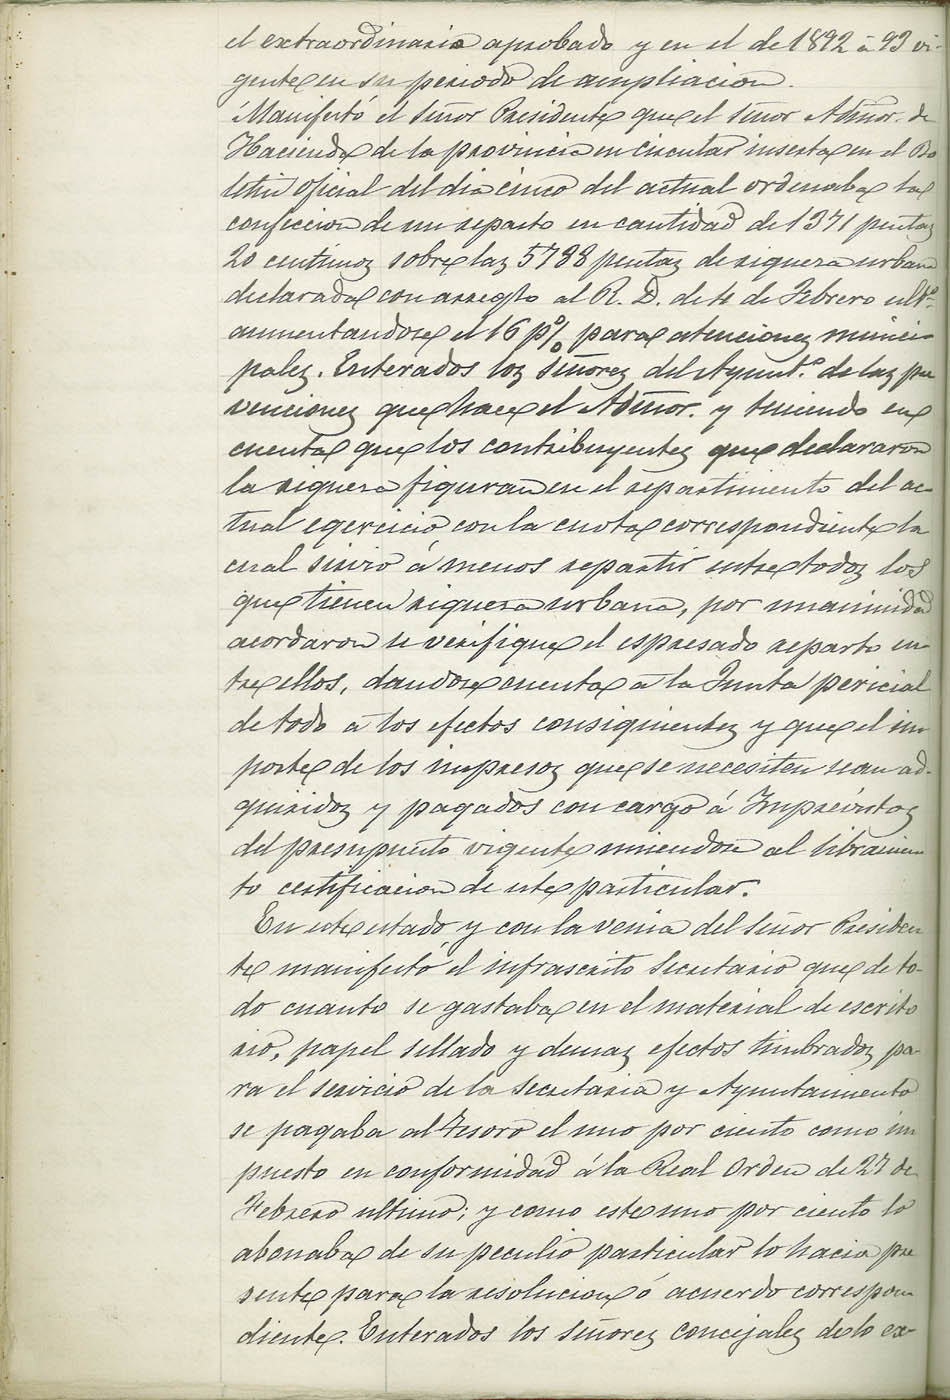 el extraordinario aprobado y en el de 1892 á 93 vi-
gente en su periodo de ampliacion.
Manifestó el señor Presidente que el señor Admor. de
Hacienda de la provincia en circular inserta en el Bo
letin oficial del dia cinco del actual ordenaba la
confeccion de un reparto en cantidad de 1371 pesetas
20 centimos sobre las 5788 pesetas de riquera urbana
declarada con arreglo al R. D. de 4 de Febrero ultº.
aumentandose el 16 p% para atenciones munici-
pales. Enterados los señores del Ayuntº. de las pre
venciones que hace el Admor. y teniendo en
cuenta que los contribuyentes que declararon
la riquera figuran en el repartimiento del ac-
tual egercicio con la cuota correspondiente la
cual sirvio á menos repartir entre todos los
que tienen riquera urbana, por unanimidad
acordaron se verifique el espresado reparto en
tre ellos, dandose cuenta á la Junta pericial
de todo á los efectos consiguientes y que el im
porte de los impresos que se necesiten sean ad-
quiridos y pagados con cargo á Imprevistos
del presupuesto vigente uniendose al libramien
to certificacion de este particular.
En este estado y con la venia del señor Presiden
te manifestó el infrascrito Secretario que de to-
do cuanto se gastaba en el material de escrito
rio, papel sellado y demas efectos timbrados pa-
ra el servicio de la Secretaria y Ayuntamiento
se pagaba al Tesoro el uno por ciento como im
puesto en conformidad á la Real Orden de 27 de
Febrero ultimo; y como este uno por ciento lo
abonaba de su peculio particular lo hacia pre
sente para la resolucion ó acuerdo correspon
diente. Enterados los señores concejales de lo ex-